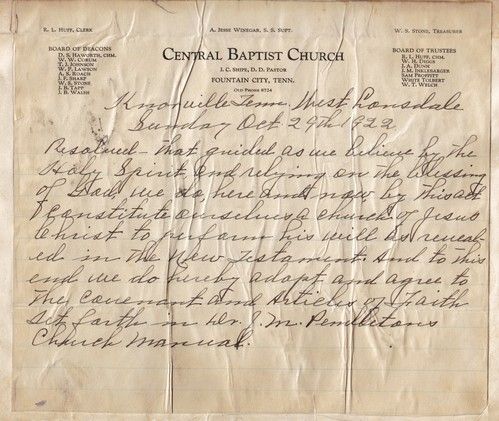 R. L. HUFF, CLERK
A. JESSE WINEGAR, S. S. SUPT.
W. S. STONE, TREASURER
BOARD OF DEACONS
D. S. HAWORTH, CHM.
W. W. CORUM
T. J. JOHNSON
W. P. LAWSON
A. S. ROACH
J. F. SHARP
W. S. STONE
J. B. TAPP
J. B. WALSH
CENTRAL BAPTIST CHURCH
J. C. SHIPE, D. D. PASTOR
FOUNTAIN CITY, TENN.
OLD PHONE 8724
BOARD OF TRUSTEES
R. L. HUFF, CHM.
W. H. DIGGS
J. A. DUNN
J. M. INKLEBARGER
SAM PROFFITT
WHITE TOLBERT
W. T. WELCH
Knoxville Tenn. West Lonsdale
Sunday Oct 29th 1922
Resolved - that guided as we believe by the
Holy Spirit, and relying on the blessing
of God we do, here and now by this act
constitute ourselves a church of Jesus
Christ to perform his will as reveal-
ed in the New Testament. And to this
end we do hereby adopt and agree to
the Covenant and Articles of Faith
set forth in Dr. J. M. Pendleton's
Church Manual.